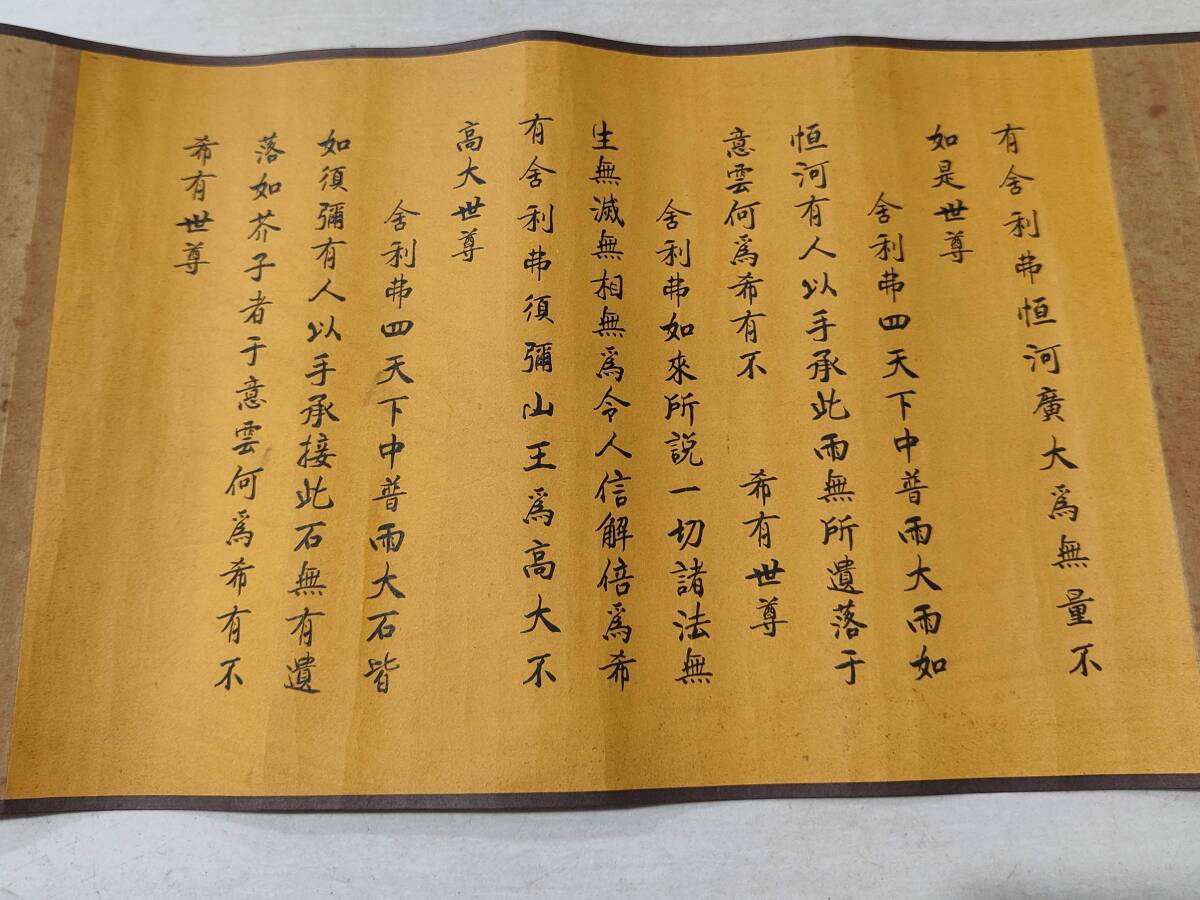 有舍利弗恒河廣大爲無量不
如是世尊
舍利弗四天下中普雨大雨如
恒河有人以手承此雨無所遺落于
意雲何爲希有不　希有世尊
舍利弗如來所説一切諸法無
生無滅無相無爲令人信解倍爲希
有舍利弗須彌山王爲高大不
高大世尊
舍利弗四天下中普雨大石皆
如須彌有人以手承接此石無有遺
落如芥子者于意雲何爲希有不
希有世尊